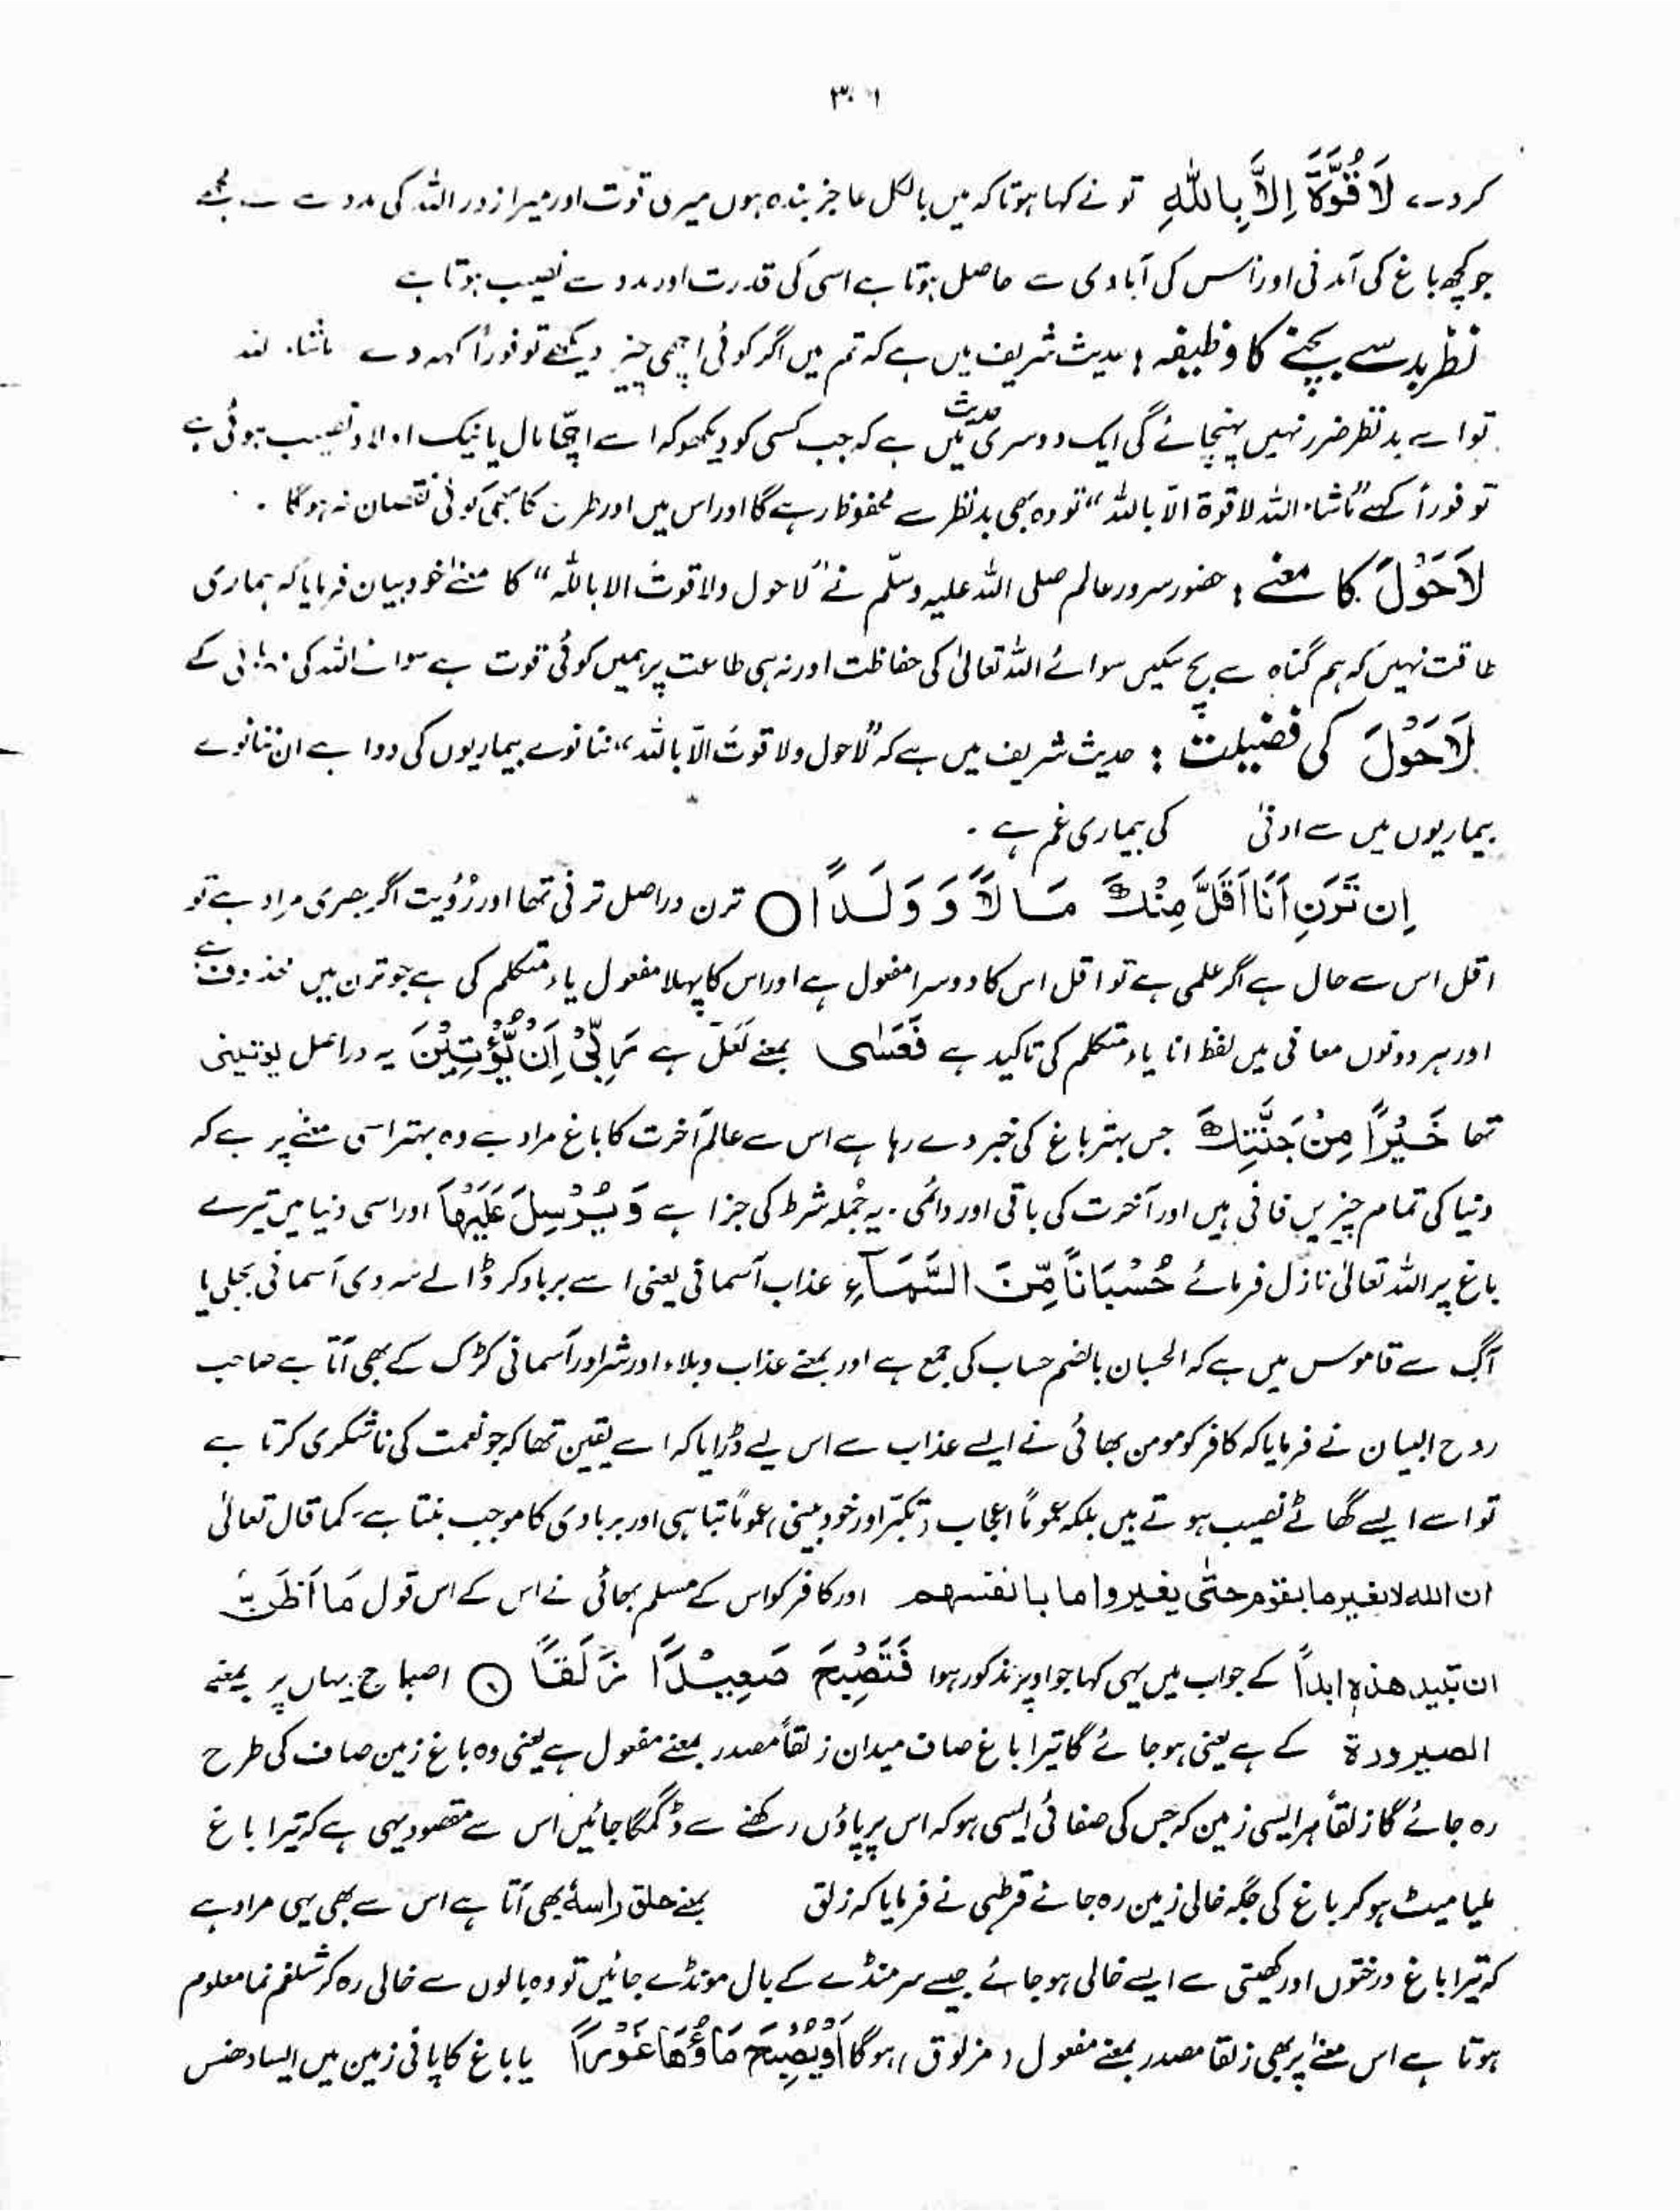 ۳۰۱
کر دے لَا قُوَّةَ اِلَّا بِاللّٰهِ تو نے کہا ہوتا کہ میں بالکل عاجز بندہ ہوں میری قوت اور میرا زور اللہ کی مدد سے ہے مجھے
جو کچھ باغ کی آمدنی اور اس کی آبادی سے حاصل ہوتا ہے اسی کی قدرت اور مدد سے نصیب ہوتا ہے
نظر بد سے بچنے کا وظیفہ : حدیث شریف میں ہے کہ تم میں اگر کوئی اچھی چیز دیکھے تو فوراً کہہ دے ماشاء اللہ
تو اسے بد نظر ضرر نہیں پہنچائے گی ایک دوسری حدیث میں ہے کہ جب کسی کو دیکھو کہ اسے اچھا مال یا نیک اولاد نصیب ہوئی ہے
تو فوراً کہے ”ماشاء اللہ لا قوۃ الّا باللہ“ تو وہ بھی بد نظر سے محفوظ رہے گا اور اس میں اور طرح کا بھی کوئی نقصان نہ ہوگا ۔
لَاحَوْلَ کا معنے : حضور سرور عالم صلی اللہ علیہ وسلّم نے ”لا حول ولا قوت الا باللہ“ کا معنےٰ خود بیان فرمایا کہ ہماری
طاقت نہیں کہ ہم گناہ سے بچ سکیں سوائے اللہ تعالیٰ کی حفاظت اور نہ ہی طاعت پر ہمیں کوئی قوت ہے سوائے اللہ کی مہربانی کے
لَاحَوْلَ کی فضیلت : حدیث شریف میں ہے کہ ”لا حول ولا قوتُ الّا باللہ“ ننانوے بیماریوں کی دوا ہے ان ننانوے
بیماریوں میں سے ادنیٰ کی بیماری غم ہے ۔
اِن تَرَنِ اَنَا اَقَلَّ مِنْكَ مَالًا وَّ وَلَدًا ○ ترن دراصل ترنی تھا اور رُؤیت اگر بصری مراد ہے تو
اقل اس سے حال ہے اگر علمی ہے تو اقل اس کا دوسرا مفعول ہے اور اس کا پہلا مفعول یاء متکلم کی ہے جو ترن میں محذوف ہے
اور ہر دونوں معانی میں لفظ انا یاء متکلم کی تاکید ہے فَعَسٰى بمعنے لَعَلّ ہے رَبِّيْٓ اَنْ يُّؤْتِيَنِ یہ دراصل یؤتینی
تھا خَيْرًا مِنْ جَنَّتِكَ جس بہتر باغ کی خبر دے رہا ہے اس سے عالم آخرت کا باغ مراد ہے وہ بہتر اسی معنے پر ہے کہ
دنیا کی تمام چیزیں فانی ہیں اور آخرت کی باقی اور دائمی ۔ یہ جُملہ شرط کی جزا ہے وَيُرْسِلَ عَلَيْهَا اور اسی دنیا میں تیرے
باغ پر اللہ تعالیٰ نازل فرمائے حُسْبَانًا مِّنَ السَّمَآءِ عذاب آسمانی یعنی اسے برباد کر ڈالے سردی آسمانی بجلی یا
آگ سے قاموس میں ہے کہ الحسبان بالضم حساب کی جمع ہے اور بمعنے عذاب و بلاء اور شر اور آسمانی کڑک کے بھی آتا ہے صاحب
روح البیان نے فرمایا کہ کافر کو مومن بھائی نے ایسے عذاب سے اس لیے ڈرایا کہ اسے یقین تھا کہ جو نعمت کی ناشکری کرتا ہے
تو اسے ایسے گھاٹے نصیب ہوتے ہیں بلکہ عموماً اعجاب (تکبّر اور خود بینی) عموماً تباہی اور بربادی کا موجب بنتا ہے۔ کما قال تعالیٰ
ان الله لا يغير ما بقوم حتّى يغيروا ما بانفسهم اور کافر کو اس کے مسلم بھائی نے اس کے اس قول مَا اَظُنُّ
ان تبید ھذہٖ ابداً کے جواب میں یہی کہا جو اوپر مذکور ہوا فَتُصْبِحَ صَعِيْدًا زَلَقًا ○ اصباح یہاں پر بمعنے
الصیرورۃ کے ہے یعنی ہو جائے گا تیرا باغ صاف میدان زلقاً مصدر بمعنے مفعول ہے یعنی وہ باغ زمین صاف کی طرح
رہ جائے گا زلقاً ہر ایسی زمین کہ جس کی صفائی ایسی ہو کہ اس پر پاؤں رکھنے سے ڈگمگا جائیں اس سے مقصود یہی ہے کہ تیرا باغ
ملیامیٹ ہو کر باغ کی جگہ خالی زمین رہ جائے قرطبی نے فرمایا کہ زلق بمعنے حلق راسہٗ بھی آتا ہے اس سے بھی یہی مراد ہے
کہ تیرا باغ درختوں اور کھیتی سے ایسے خالی ہو جائے جیسے سر منڈے کے بال مونڈے جائیں تو وہ بالوں سے خالی رہ کر شلغم نما معلوم
ہوتا ہے اس معنےٰ پر بھی زلقا مصدر بمعنے مفعول (مزلوق) ہوگا اَوْ يُصْبِحَ مَاؤُهَا غَوْرًا یا باغ کا پانی زمین میں ایسا دھنس